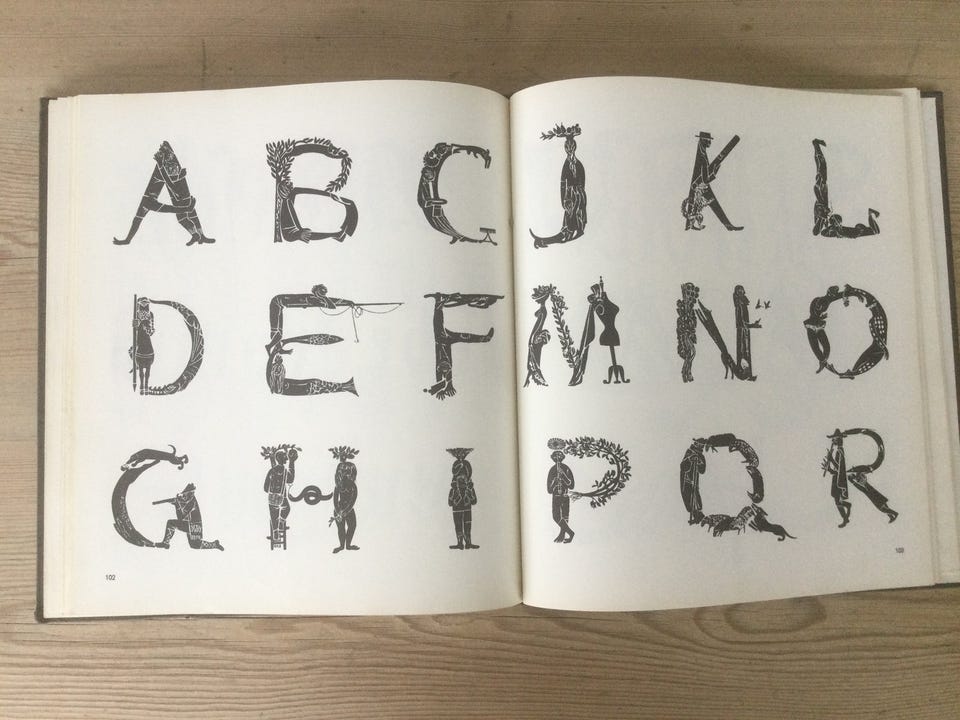 A B C
D E F
G H I
102
J K L
M N O
P Q R
103